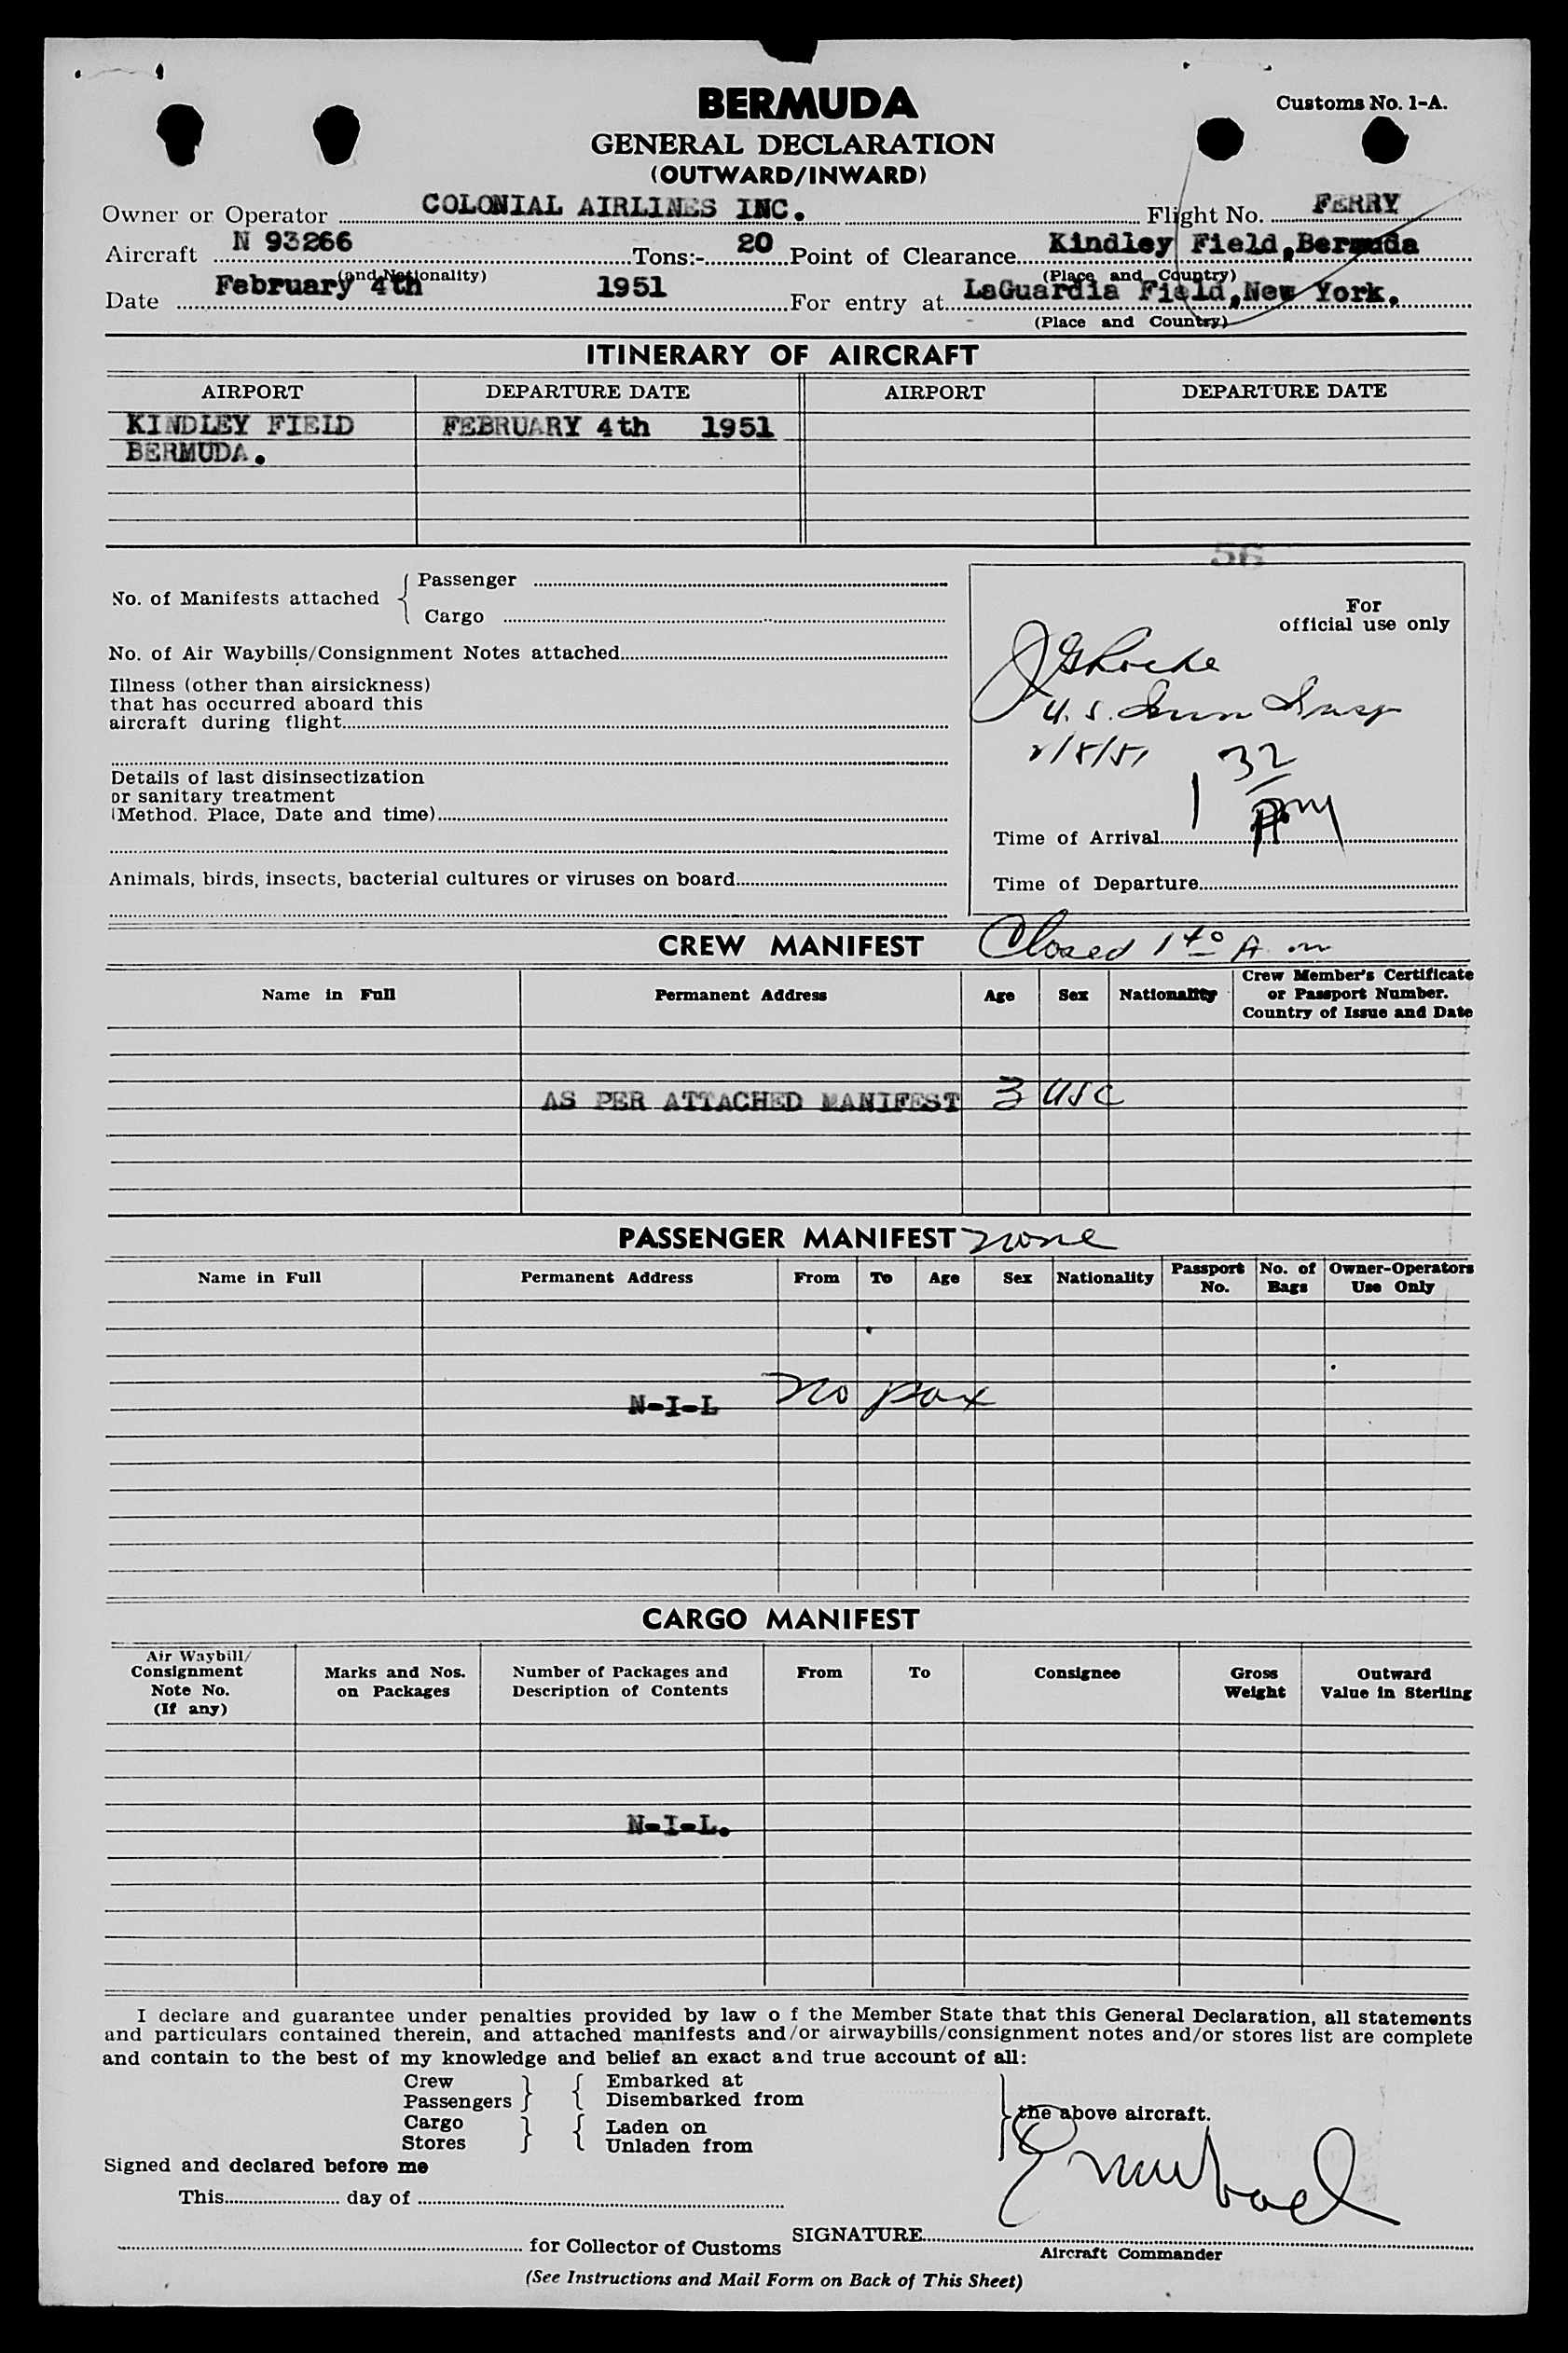 BERMUDA
Customs No. 1-A.
GENERAL DECLARATION
(OUTWARD/INWARD)
Owner or Operator COLONIAL AIRLINES INC. Flight No. FERRY
Aircraft N 93266 Tons:- 20 Point of Clearance Kindley Field, Bermuda
(and Nationality) (Place and Country)
Date February 4th 1951 For entry at LaGuardia Field, New York.
(Place and Country)
ITINERARY OF AIRCRAFT
AIRPORT DEPARTURE DATE AIRPORT DEPARTURE DATE
KINDLEY FIELD FEBRUARY 4th 1951
BERMUDA.
56
No. of Manifests attached { Passenger
Cargo
For
official use only
No. of Air Waybills/Consignment Notes attached
Illness (other than airsickness)
that has occurred aboard this
aircraft during flight
U. S.
Details of last disinsectization
or sanitary treatment
(Method. Place, Date and time)
1 32
Time of Arrival
Animals, birds, insects, bacterial cultures or viruses on board
Time of Departure
CREW MANIFEST Closed 1 40 A m
Name in Full Permanent Address Age Sex Nationality Crew Member's Certificate
or Passport Number.
Country of Issue and Date
AS PER ATTACHED MANIFEST 3 USC
PASSENGER MANIFEST none
Name in Full Permanent Address From To Age Sex Nationality Passport No. No. of Bags Owner-Operators Use Only
N-I-L no pax
CARGO MANIFEST
Air Waybill/
Consignment
Note No.
(If any) Marks and Nos.
on Packages Number of Packages and
Description of Contents From To Consignee Gross
Weight Outward
Value in Sterling
N-I-L.
I declare and guarantee under penalties provided by law o f the Member State that this General Declaration, all statements
and particulars contained therein, and attached manifests and/or airwaybills/consignment notes and/or stores list are complete
and contain to the best of my knowledge and belief an exact and true account of all:
Crew } { Embarked at
Passengers Disembarked from
Cargo } { Laden on
Stores Unladen from
} the above aircraft.
Signed and declared before me
This day of
for Collector of Customs SIGNATURE
Aircraft Commander
(See Instructions and Mail Form on Back of This Sheet)